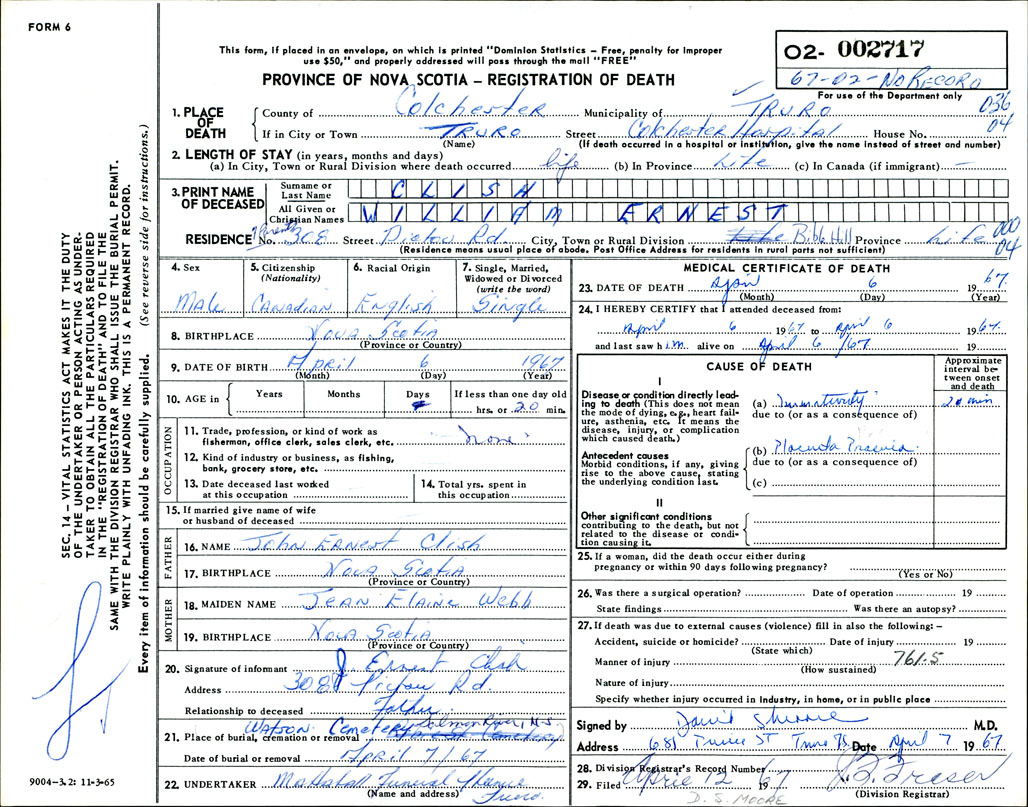 FORM 6
This form, if placed in an envelope, on which is printed "Dominion Statistics – Free, penalty for improper
use $50," and properly addressed will pass through the mail "FREE"
PROVINCE OF NOVA SCOTIA – REGISTRATION OF DEATH
O2- 002717
67-02-NO RECORD
For use of the Department only
036
04
1. PLACE OF DEATH
County of Colchester Municipality of TRURO
If in City or Town TRURO Street Colchester Hospital House No.
(Name) (If death occurred in a hospital or institution, give the name instead of street and number)
2. LENGTH OF STAY (in years, months and days)
(a) In City, Town or Rural Division where death occurred life (b) In Province Life (c) In Canada (if immigrant) —
3. PRINT NAME OF DECEASED
Surname or Last Name CLISH
All Given or Christian Names WILLIAM ERNEST
Parents
RESIDENCE No. 308 Street Pictou Rd. City, Town or Rural Division Bible Hill Province Life
000
04
(Residence means usual place of abode. Post Office Address for residents in rural parts not sufficient)
4. Sex
Male
5. Citizenship
(Nationality)
Canadian
6. Racial Origin
English
7. Single, Married,
Widowed or Divorced
(write the word)
Single
8. BIRTHPLACE Nova Scotia
(Province or Country)
9. DATE OF BIRTH April 6 1967
(Month) (Day) (Year)
10. AGE in Years Months Days If less than one day old
hrs. or 20 min.
OCCUPATION
11. Trade, profession, or kind of work as
fisherman, office clerk, sales clerk, etc. none
12. Kind of industry or business, as fishing,
bank, grocery store, etc.
13. Date deceased last worked
at this occupation
14. Total yrs. spent in
this occupation
15. If married give name of wife
or husband of deceased
FATHER
16. NAME John Ernest Clish
17. BIRTHPLACE Nova Scotia
(Province or Country)
MOTHER
18. MAIDEN NAME Jean Elaine Webb
19. BIRTHPLACE Nova Scotia
(Province or Country)
20. Signature of informant J. Ernest Clish
Address 308 Pictou Rd.
Relationship to deceased Father
21. Place of burial, cremation or removal Watson Cemetery Salmon River, N.S.
Date of burial or removal April 7/67
22. UNDERTAKER Mattatall Funeral Home
(Name and address) Truro.
MEDICAL CERTIFICATE OF DEATH
23. DATE OF DEATH April 6 1967.
(Month) (Day) (Year)
24. I HEREBY CERTIFY that I attended deceased from:
April 6 1967 to April 6 1967.
and last saw him alive on April 6/67. 19
CAUSE OF DEATH
Approximate
interval be-
tween onset
and death
I
Disease or condition directly lead-
ing to death (This does not mean
the mode of dying, e.g., heart fail-
ure, asthenia, etc. It means the
disease, injury, or complication
which caused death.)
(a) Immaturity 20 min
due to (or as a consequence of)
Antecedent causes
Morbid conditions, if any, giving
rise to the above cause, stating
the underlying condition last.
(b) Placenta Praevia.
due to (or as a consequence of)
(c)
II
Other significant conditions
contributing to the death, but not
related to the disease or condi-
tion causing it.
25. If a woman, did the death occur either during
pregnancy or within 90 days following pregnancy?
(Yes or No)
26. Was there a surgical operation? Date of operation 19
State findings Was there an autopsy?
27. If death was due to external causes (violence) fill in also the following: –
Accident, suicide or homicide? Date of injury 19
(State which)
Manner of injury 761.5
(How sustained)
Nature of injury
Specify whether injury occurred in industry, in home, or in public place
Signed by David M.D.
Address 681 Prince ST Truro NS Date April 7 1967
28. Division Registrar's Record Number
29. Filed April 12 67 Fraser
D. S. MOORE (Division Registrar)
SEC. 14 – VITAL STATISTICS ACT MAKES IT THE DUTY
OF THE UNDERTAKER OR PERSON ACTING AS UNDER-
TAKER TO OBTAIN ALL THE PARTICULARS REQUIRED
IN THE "REGISTRATION OF DEATH" AND TO FILE THE
SAME WITH THE DIVISION REGISTRAR WHO SHALL ISSUE THE BURIAL PERMIT.
WRITE PLAINLY WITH UNFADING INK. THIS IS A PERMANENT RECORD.
Every item of information should be carefully supplied. (See reverse side for instructions.)
9004–3.2: 11-3-65